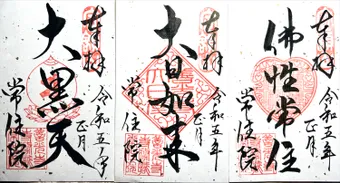 奉拝
大黒天
令和五年
正月
常住院
奉拝
大日如来
令和五年
正月
常住院
奉拝
佛性常住
令和五年
正月
常住院